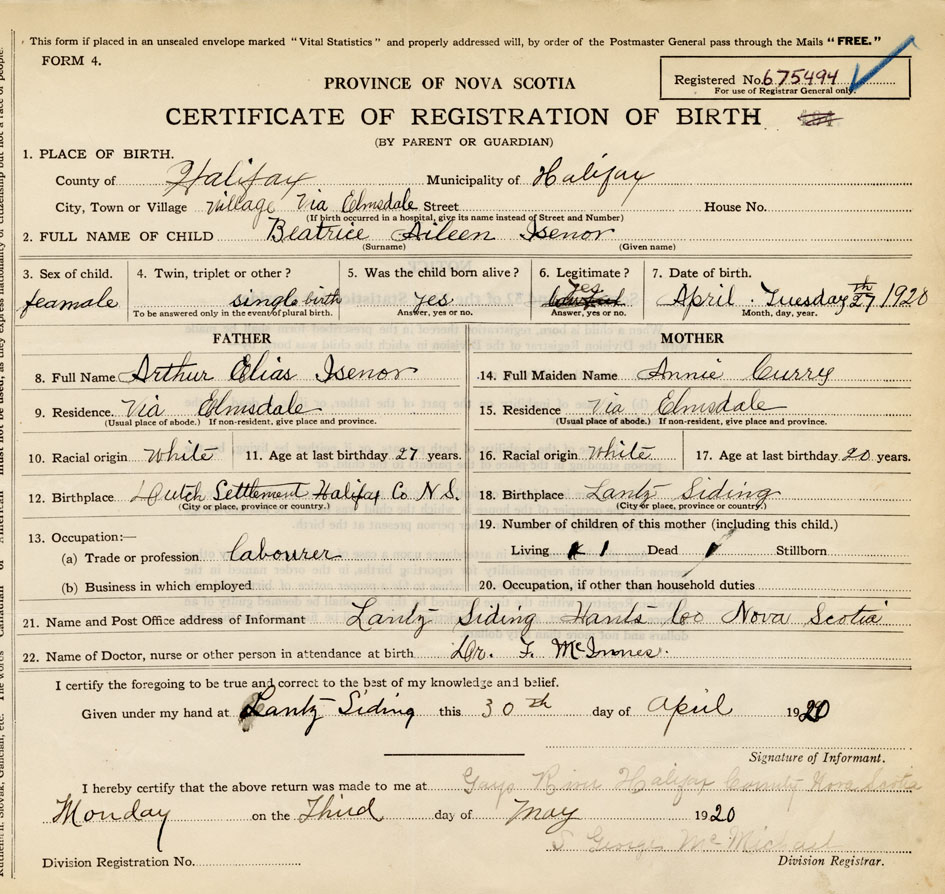 This form if placed in an unsealed envelope marked "Vital Statistics" and properly addressed will, by order of the Postmaster General pass through the Mails "FREE."
FORM 4.
Registered No. 675494
For use of Registrar General only.
PROVINCE OF NOVA SCOTIA
CERTIFICATE OF REGISTRATION OF BIRTH
(BY PARENT OR GUARDIAN)
1. PLACE OF BIRTH.
County of Halifax Municipality of Halifax
City, Town or Village Village Via Elmsdale Street House No.
(If birth occurred in a hospital, give its name instead of Street and Number)
2. FULL NAME OF CHILD Beatrice Aileen Isenor
(Surname) (Given name)
3. Sex of child. 4. Twin, triplet or other? 5. Was the child born alive? 6. Legitimate? 7. Date of birth.
feamale single birth yes Yes April . Tuesday 27th 1920
To be answered only in the event of plural birth. Answer, yes or no. Answer, yes or no. Month, day, year.
FATHER MOTHER
8. Full Name Arthur Elias Isenor 14. Full Maiden Name Annie Curry
9. Residence. Via Elmsdale 15. Residence Via Elmsdale
(Usual place of abode.) If non-resident, give place and province. (Usual place of abode.) If non-resident, give place and province.
10. Racial origin White 11. Age at last birthday 27 years. 16. Racial origin White 17. Age at last birthday 20 years.
12. Birthplace Dutch Settlement Halifax Co N.S. 18. Birthplace Lantz Siding
(City or place, province or country.) (City or place, province or country.)
13. Occupation:— 19. Number of children of this mother (including this child.)
(a) Trade or profession labourer Living 1 Dead Stillborn
(b) Business in which employed 20. Occupation, if other than household duties
21. Name and Post Office address of Informant Lantz Siding Hants Co Nova Scotia
22. Name of Doctor, nurse or other person in attendance at birth Dr. F. McInnes.
I certify the foregoing to be true and correct to the best of my knowledge and belief.
Given under my hand at Lantz Siding this 30th day of April 1920
Signature of Informant.
I hereby certify that the above return was made to me at Gays River Halifax County Nova Scotia
Monday on the Third day of May 1920
S George McMichael
Division Registration No. Division Registrar.